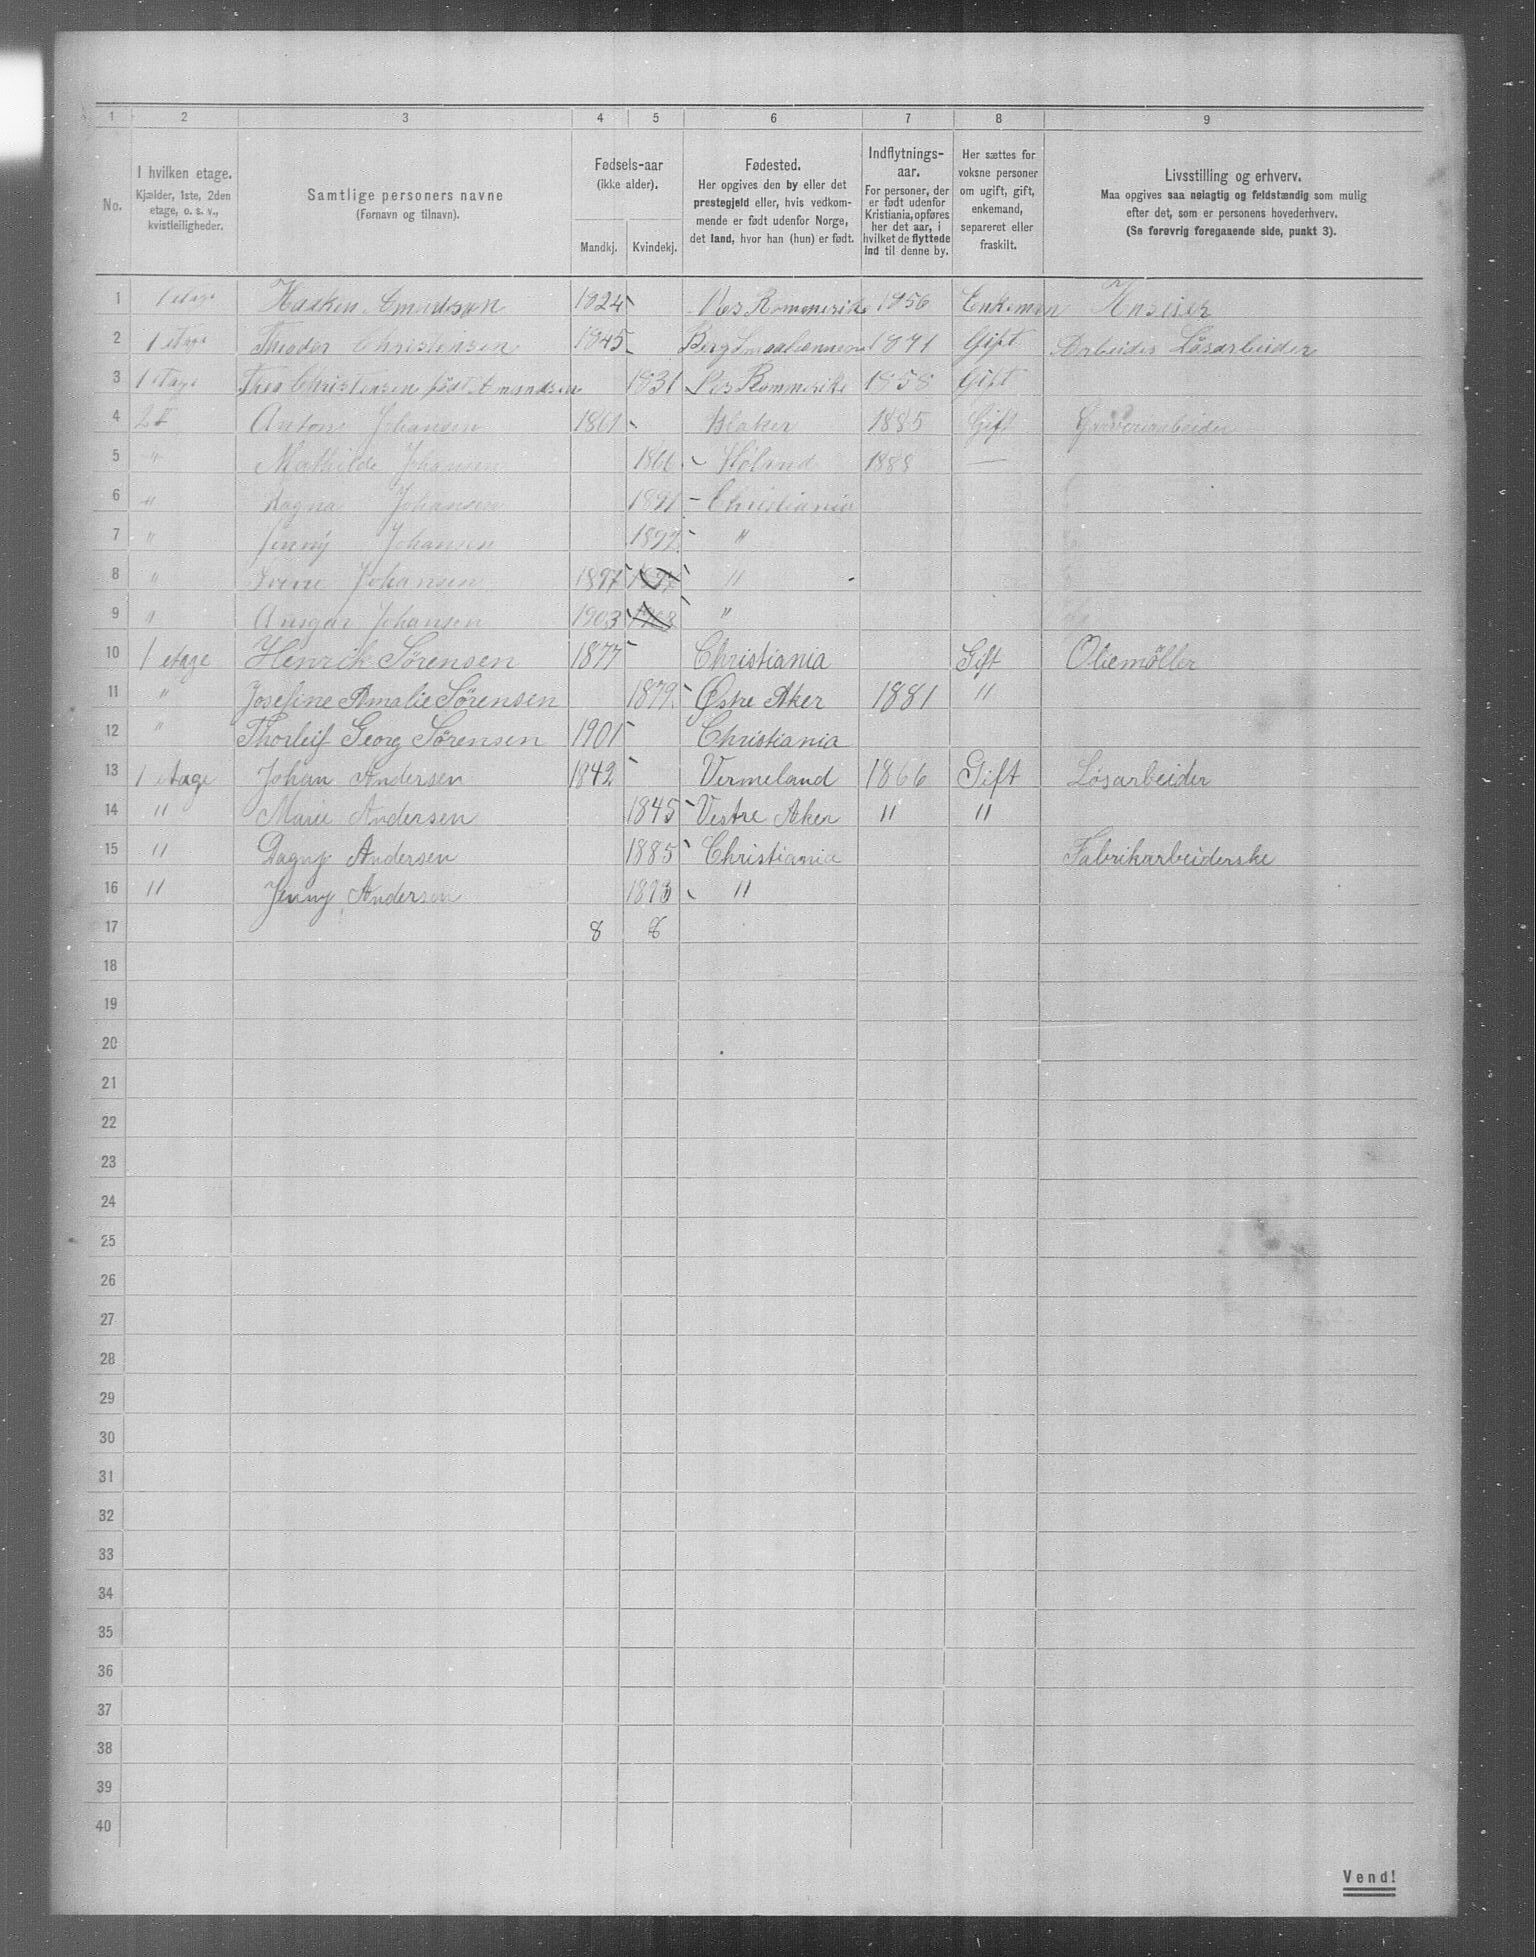 1 2 3 4 5 6 7 8 9
No.
I hvilken etage.
Kjælder, 1ste, 2den
etage, o. s. v.,
kvistleiligheder.
Samtlige personers navne
(Fornavn og tilnavn).
Fødsels-aar
(ikke alder).
Mandkj. Kvindekj.
Fødested.
Her opgives den by eller det
prestegjeld eller, hvis vedkom-
mende er født udenfor Norge,
det land, hvor han (hun) er født.
Indflytnings-
aar.
For personer, der
er født udenfor
Kristiania, opføres
her det aar, i
hvilket de flyttede
ind til denne by.
Her sættes for
voksne personer
om ugift, gift,
enkemand,
separeret eller
fraskilt.
Livsstilling og erhverv.
Maa opgives saa nøiagtig og fuldstændig som mulig
efter det, som er personens hovederhverv.
(Se forøvrig foregaaende side, punkt 3).
1 1 etage 1824 Nes Romerike 1856 Enkeman
2 1 etage Theodor Christensen 1845 Gift Arbeider Løsarbeider
3 1 etage Thea Christensen født Amundsen 1831 Nes Romerike 1858 Gift
4 Anton Johansen 1861 Blaker 1885 Gift
5 " Mathilde Johansen 1866 Høland 1888 —
6 " Ragna Johansen 1891 Christiania
7 " Jenny Johansen "
8 " Johansen 1897 1897 "
9 " Ansgar Johansen 1903 1903 "
10 1 etage Henrik Sørensen 1877 Christiania Gift Oliemøller
11 " Josefine Amalie Sørensen 1879 Østre Aker 1881 "
12 " Thorleif Georg Sørensen 1901 Christiania
13 1 etage Johan Andersen 1842 Vermeland 1866 Gift Løsarbeider
14 " Marie Andersen 1845 Vestre Aker " "
15 " Dagny Andersen 1885 Christiania Fabrikarbeiderske
16 " Jenny Andersen 1893 "
17 8 8
18
19
20
21
22
23
24
25
26
27
28
29
30
31
32
33
34
35
36
37
38
39
40
Vend!